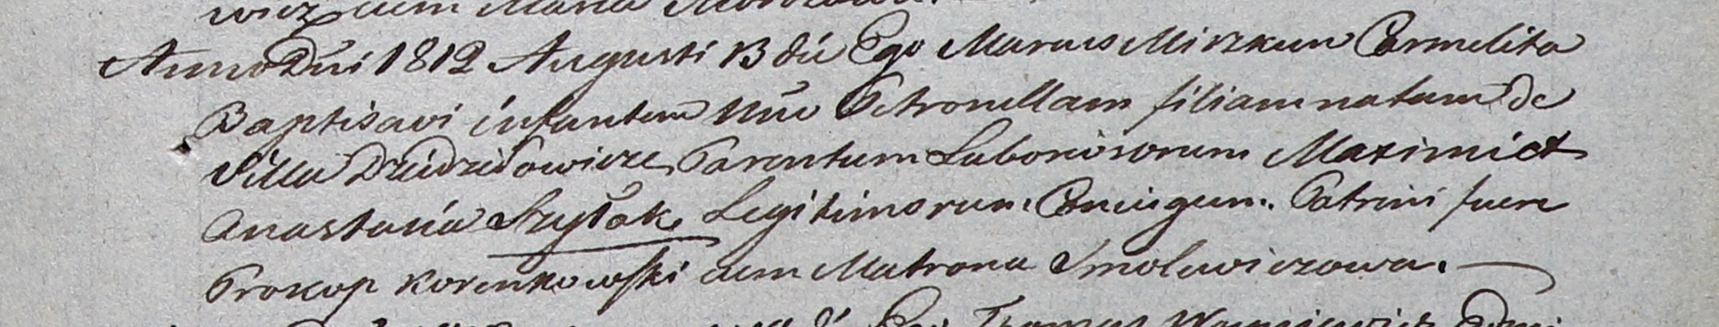 wicz cum Maria
Anno Dni 1812 Augusti 13 die Ego Marcus Miszkun Carmelita
Baptisavi infantem nne Petronellam filiam natam de
Villa Dzidziłowicze Parentum Laboriosorum Maximi et
Anastasia Szyłak Legitimorum Coniugum. Patrini fuere
Prokop Korenkowski cum Matrona Smolewiczowa.
Ego Thomas